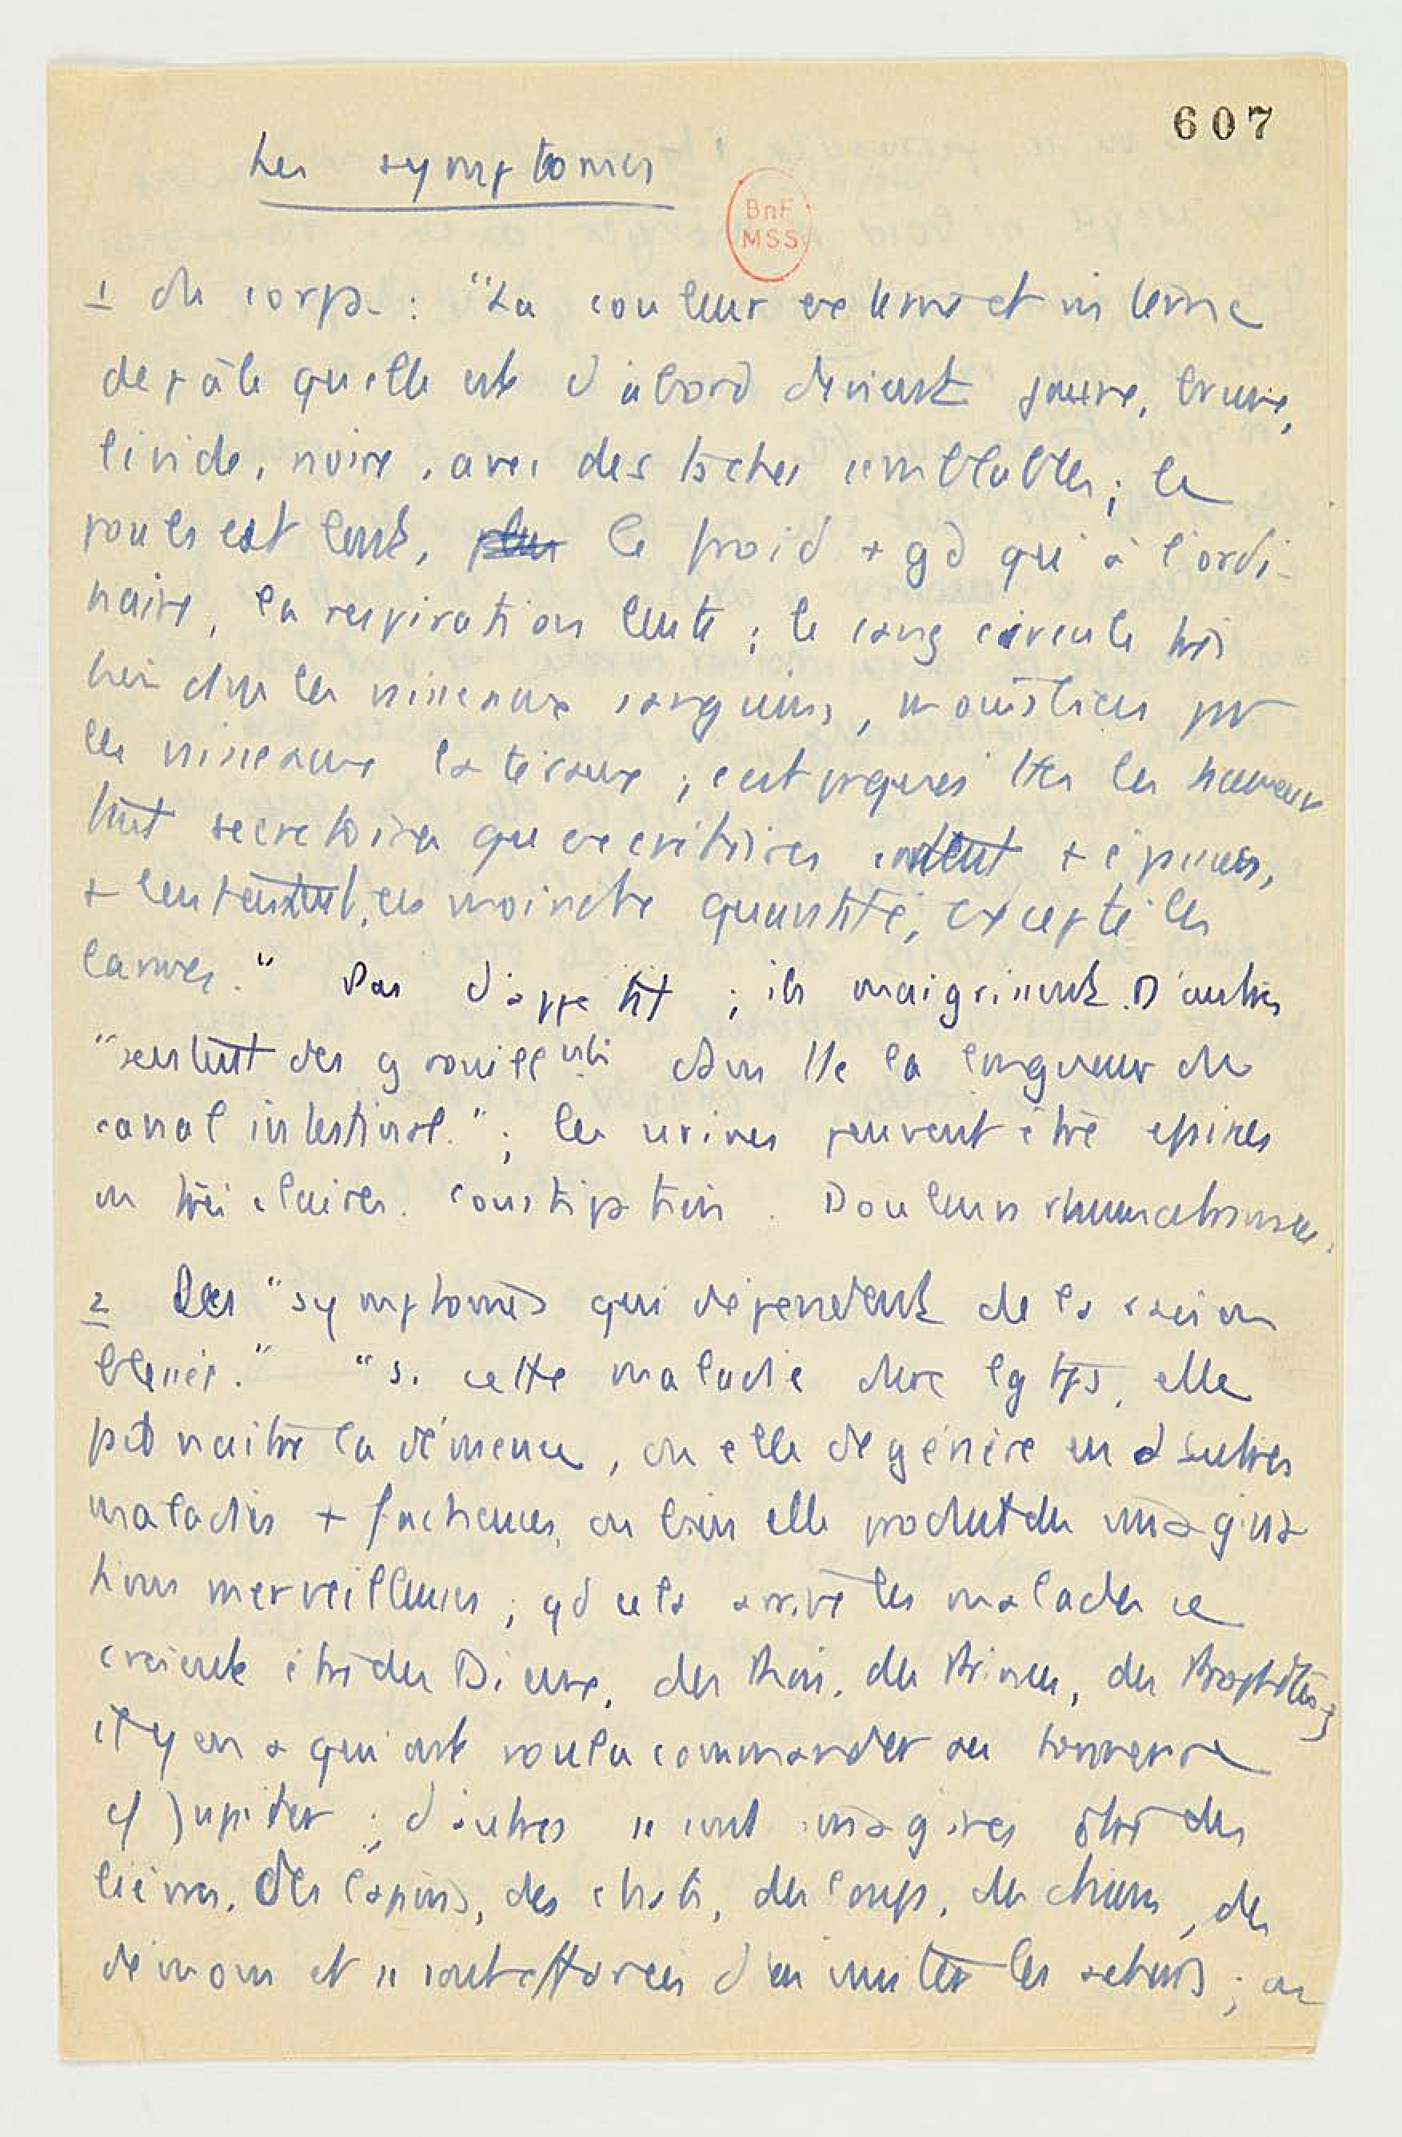 607
Les symptomes
BnF
MSS
1 du corps : "La couleur externe et interne
de pâle qu'elle est d'abord devient jaune, brune,
livide, noire, avec des taches semblables ; le
pouls est lent, le froid + gd qu'à l'ordi-
naire, la respiration lente ; le sang circule très
bien dans les vaisseaux sanguins, moins bien pr
les vaisseaux latéraux ; c'est pourquoi ttes les humeurs
tant secretoires que excrétoires sont + épaisses,
+ lentes, en moindre quantité, excepté les
larmes." Pas d'appétit ; ils maigrissent. D'autres
"sentent des grouillmts dans tte la longueur du
canal intestinal." ; les urines peuvent être épaisses
ou très claires. Constipation. Douleurs rhumatismales.
2 Les "symptomes qui dépendent de la raison
blessée." "Si cette maladie dure lgtps, elle
pd naitre la démence, ou elle dégénère en d'autres
maladies + facheuses, ou bien elle produit des imagina
tions merveilleuses ; qd cela arrive les malades se
croient être des Dieux, des Rois, des Princes, des Prophètes ;
il y en a qui ont voulu commander au tonnerre
cf Jupiter ; d'autres se sont imaginés être des
lièvres, des lapins, des chats, des loups, des chiens, des
démons et se sont efforcés d'en imiter les actions ; on